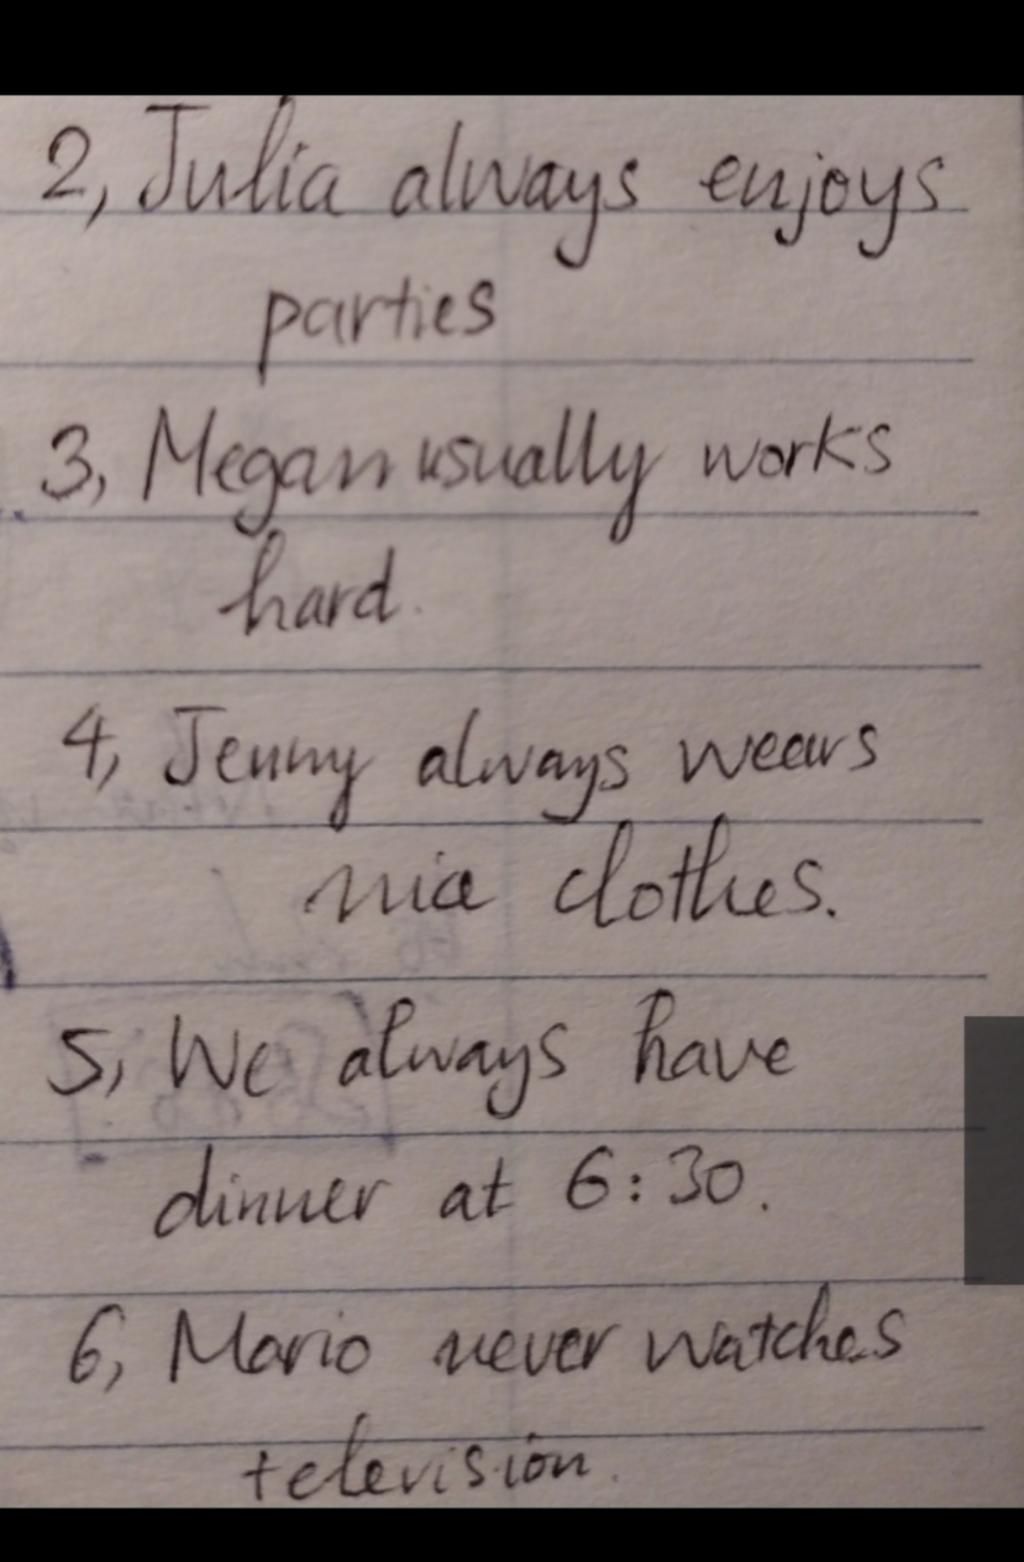 2, Julia always enjoys
parties
3, Megan usually works
hard.
4, Jenny always wears
nice clothes.
5, We always have
dinner at 6:30.
6, Mario never watches
television.